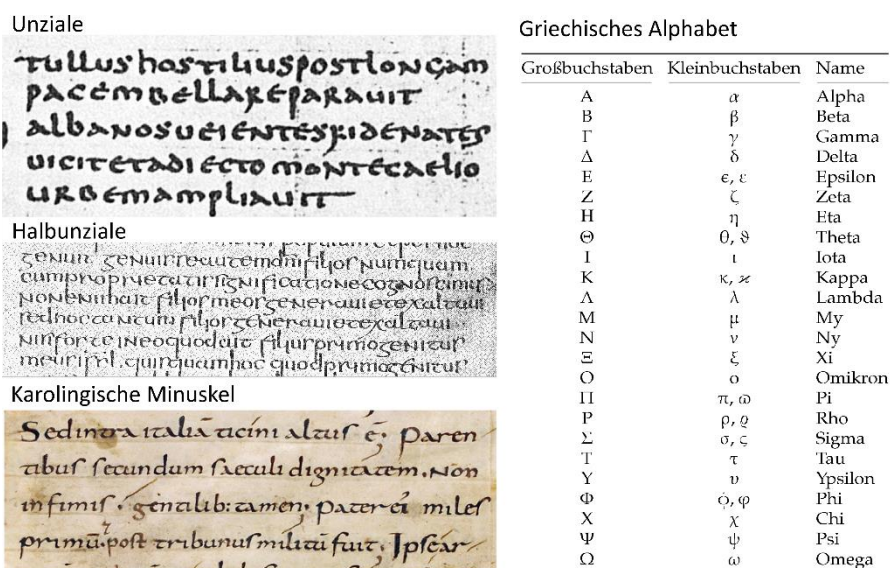 Unziale
tullus hostilius post longam
pacem bella reparauit
albanos ueientes fidenates
uicit et adiecto monte caelio
urbem ampliauit
Halbunziale
genuit genui rre autem om filios numquam
cum proprietatis significatione cognoscimus
non enim ait filios meos generaui et exaltaui
sed hoc tantum filios generaui et exaltaui
nisi forte in eo quod ait filius primogenitus
meus isrl. quinquam hoc quod primogenitus
Karolingische Minuskel
Sed intra italiā ticini altus ē; Paren
tibus secundum saeculi dignitatem. Non
infimis, gentilib: tamen; Pater ei miles
primū. post tribunus militū fuit; Ipse ar
Griechisches Alphabet
Großbuchstaben Kleinbuchstaben Name
Α α Alpha
Β β Beta
Γ γ Gamma
Δ δ Delta
Ε ϵ, ε Epsilon
Ζ ζ Zeta
Η η Eta
Θ θ, ϑ Theta
Ι ι Iota
Κ κ, ϰ Kappa
Λ λ Lambda
Μ μ My
Ν ν Ny
Ξ ξ Xi
Ο ο Omikron
Π π, ϖ Pi
Ρ ρ, ϱ Rho
Σ σ, ς Sigma
Τ τ Tau
Υ υ Ypsilon
Φ ϕ, φ Phi
Χ χ Chi
Ψ ψ Psi
Ω ω Omega